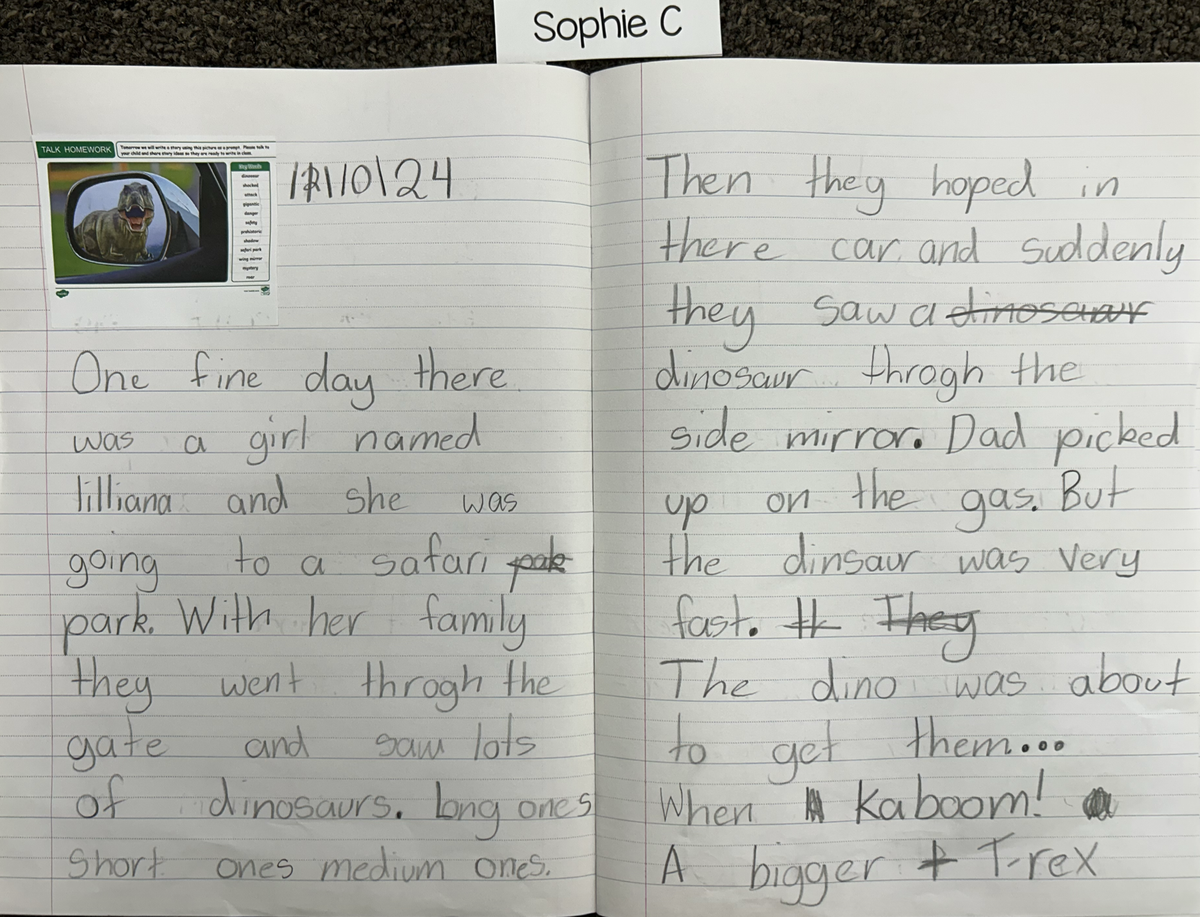 Sophie C
TALK HOMEWORK
Tomorrow we will write a story using this picture as a prompt. Please talk to
your child and share story ideas so they are ready to write in class.
Key Words
dinosaur
shocked
attack
gigantic
danger
safety
prehistoric
shadow
safari park
wing mirror
mystery
roar
One fine day there
was a girl named
lilliana and she was
going to a safari
park. With her family
they went throgh the
gate and saw lots
of dinosaurs. long ones
Short ones medium ones.
Then they hoped in
there car and suddenly
they saw a dinosauar
dinosaur throgh the
side mirror. Dad picked
up on the gas. But
the dinsaur was very
fast. It They
The dino was about
to get them...
When Kaboom!
A bigger T-rex